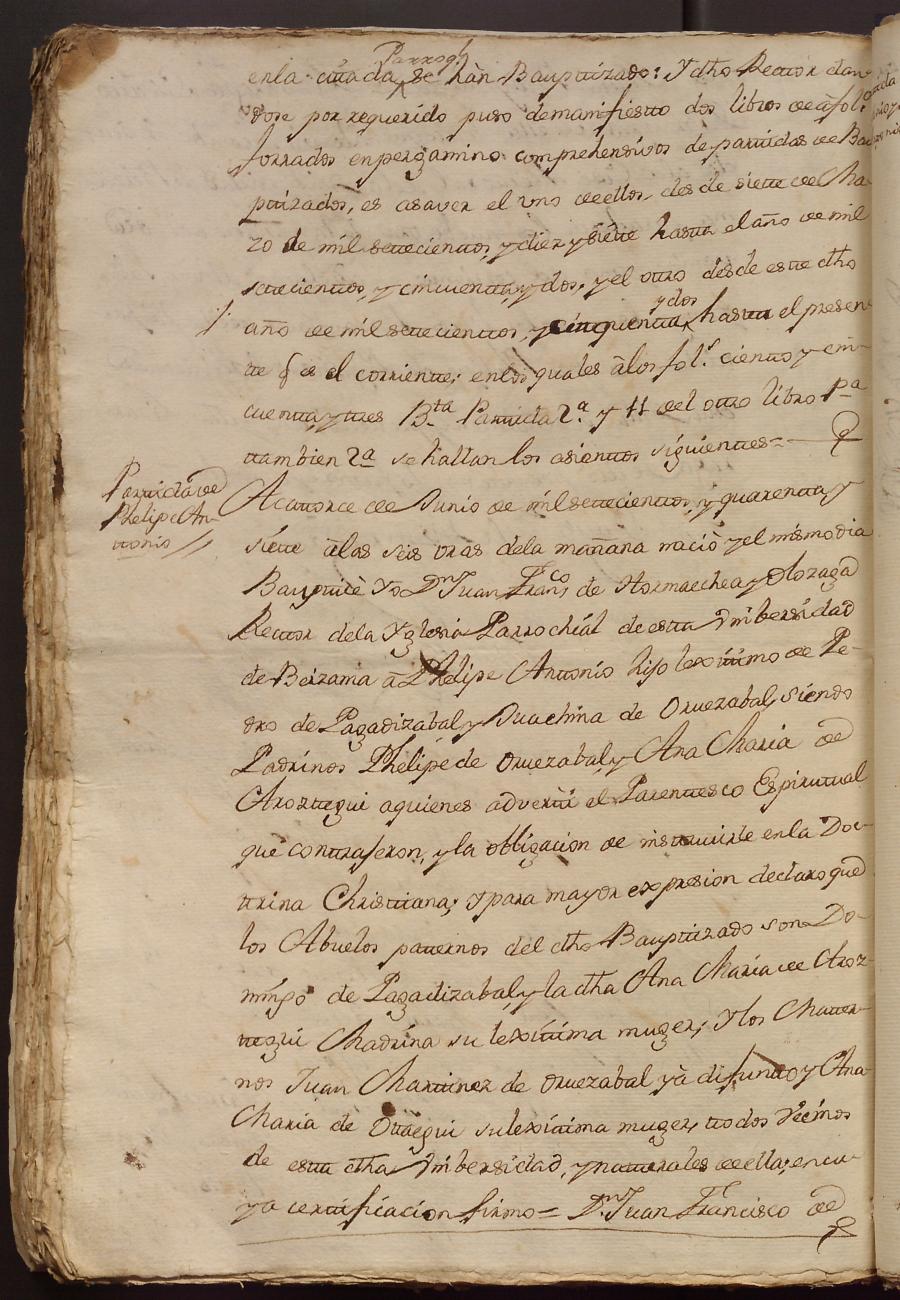 Parroq.l
en la citada, se hàn Bauptizado: Y dho Rector dan-
dose por requerido puso demanifiesto dos libros de à fol.
forrados en pergamino comprehensivos de partidas de Bau
ptizados, es asaver el uno de ellos, desde siette de Ma-
zo de mil settecienttos, y diez y siètte hasta el año de mil
settecienttos, y cincuentta, y dos, y el otro desde este dho
y dos
año de mil settecienttos, y cinquentta, hasta el presen-
te q es el corriente; en los quales à los fol.s ciento y cin-
cuenta, y tres B.ta Partida 2.a y 11 del otro libro P.a
tambien 2.a se hallan los asientos siguienttes=
Partida de
Phelipe An-
tonio
A catorce de Junio de mil settecienttos, y quarentta, y
siètte à las seis oras dela mañana naciò y el mismo dia
Bauptizè Yo D.n Juan Fran.co de Hormaechea y Olozaga
Rector dela Yglesia Parrochiàl de esta Vnibersidad
de Beizama à Phelipe Antonio hijo lexitimo de Pe-
dro de Pagadizabal y Juachina de Oruezabal, siendo
Padrinos Phelipe de Oruezabal, y Ana Maria de
Arozttegui aquienes adverti el Parenttesco Espirittual
que contrajeron, y la obligacion de insttruirle enla Doc-
trina Christtiana; y para mayor expresion declaro que
los Abuelos patternos del dho Bauptizado son Do-
mingo de Pagadizabal, y la dha Ana Maria de Aroz-
ttegui Madrina su lexittima muger; Y los Matter-
nos Juan Martinez de Oruezabal yà difunto y Ana
Maria de Ottaegui su lexittima muger, ttodos vecinos
de esta dha Vnibersidad, y natturales de ella; en cu-
ya certtificacion firmo= D.n Juan Francisco de